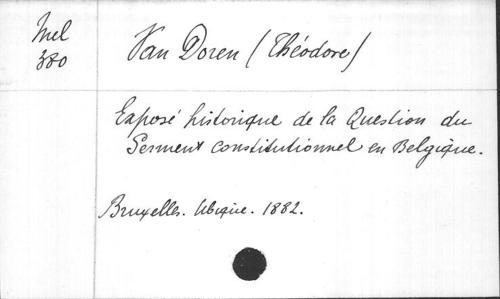 Mel
380
Van Doren (Théodore)
Exposé historique de la Question du
Serment constitutionnel en Belgique.
Bruxelles. Ubique. 1882.